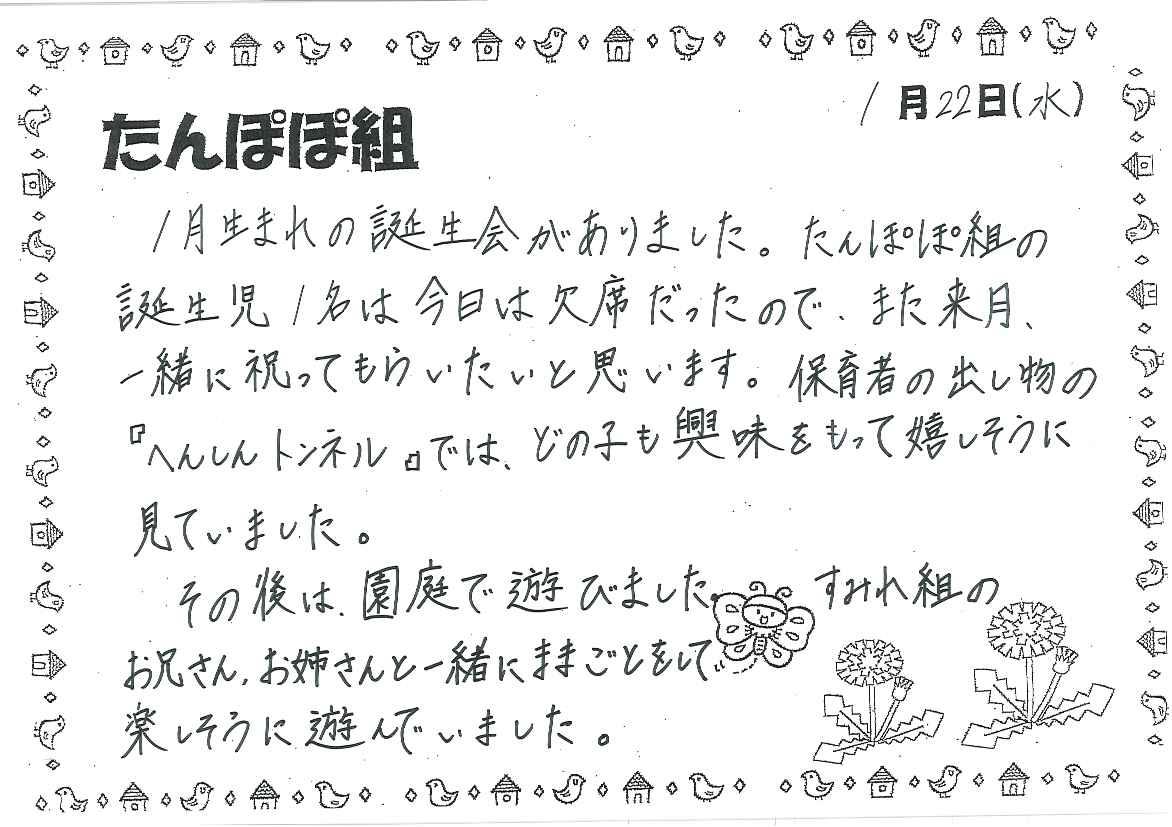 1月22日(水)
たんぽぽ組
1月生まれの誕生会がありました。たんぽぽ組の
誕生児1名は今日は欠席だったので、また来月、
一緒に祝ってもらいたいと思います。保育者の出し物の
『へんしんトンネル』では、どの子も興味をもって嬉しそうに
見ていました。
その後は、園庭で遊びました。すみれ組の
お兄さん、お姉さんと一緒にままごとをして
楽しそうに遊んでいました。